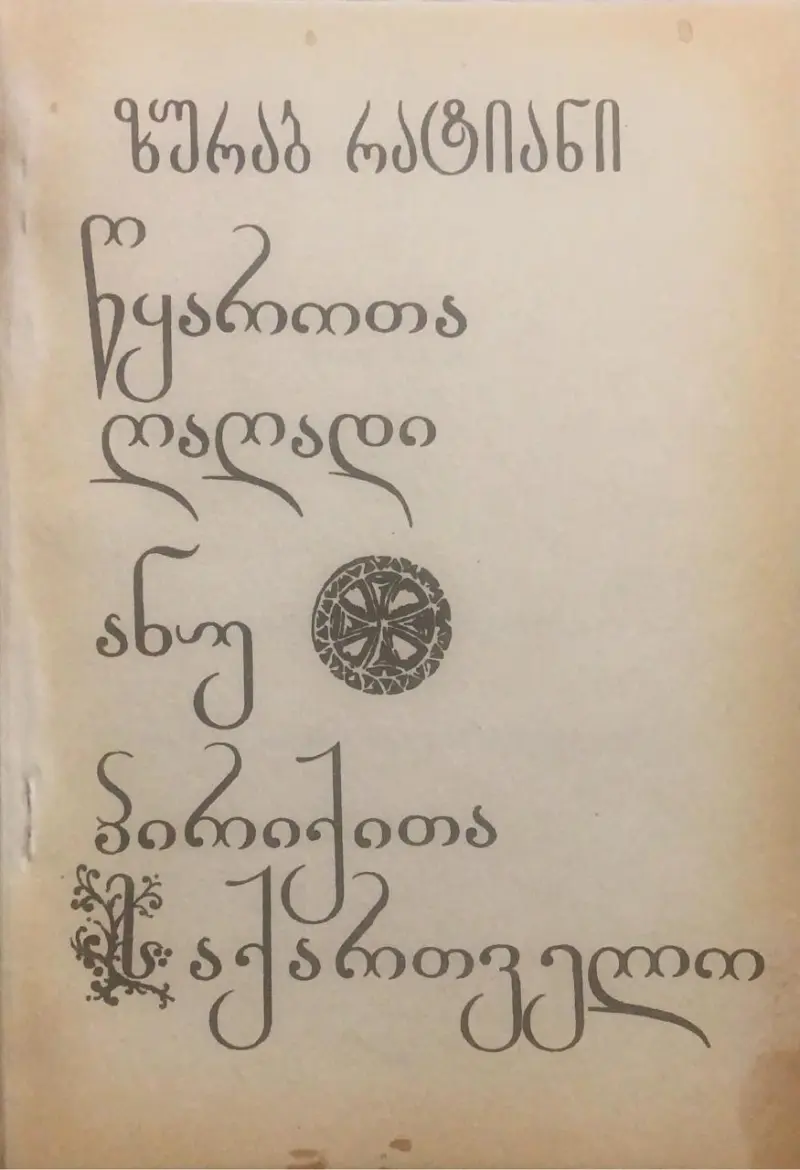 ზურაბ რატიანი
წყაროთა
ღაღადი
ანუ
პირიქითა
საქართველო